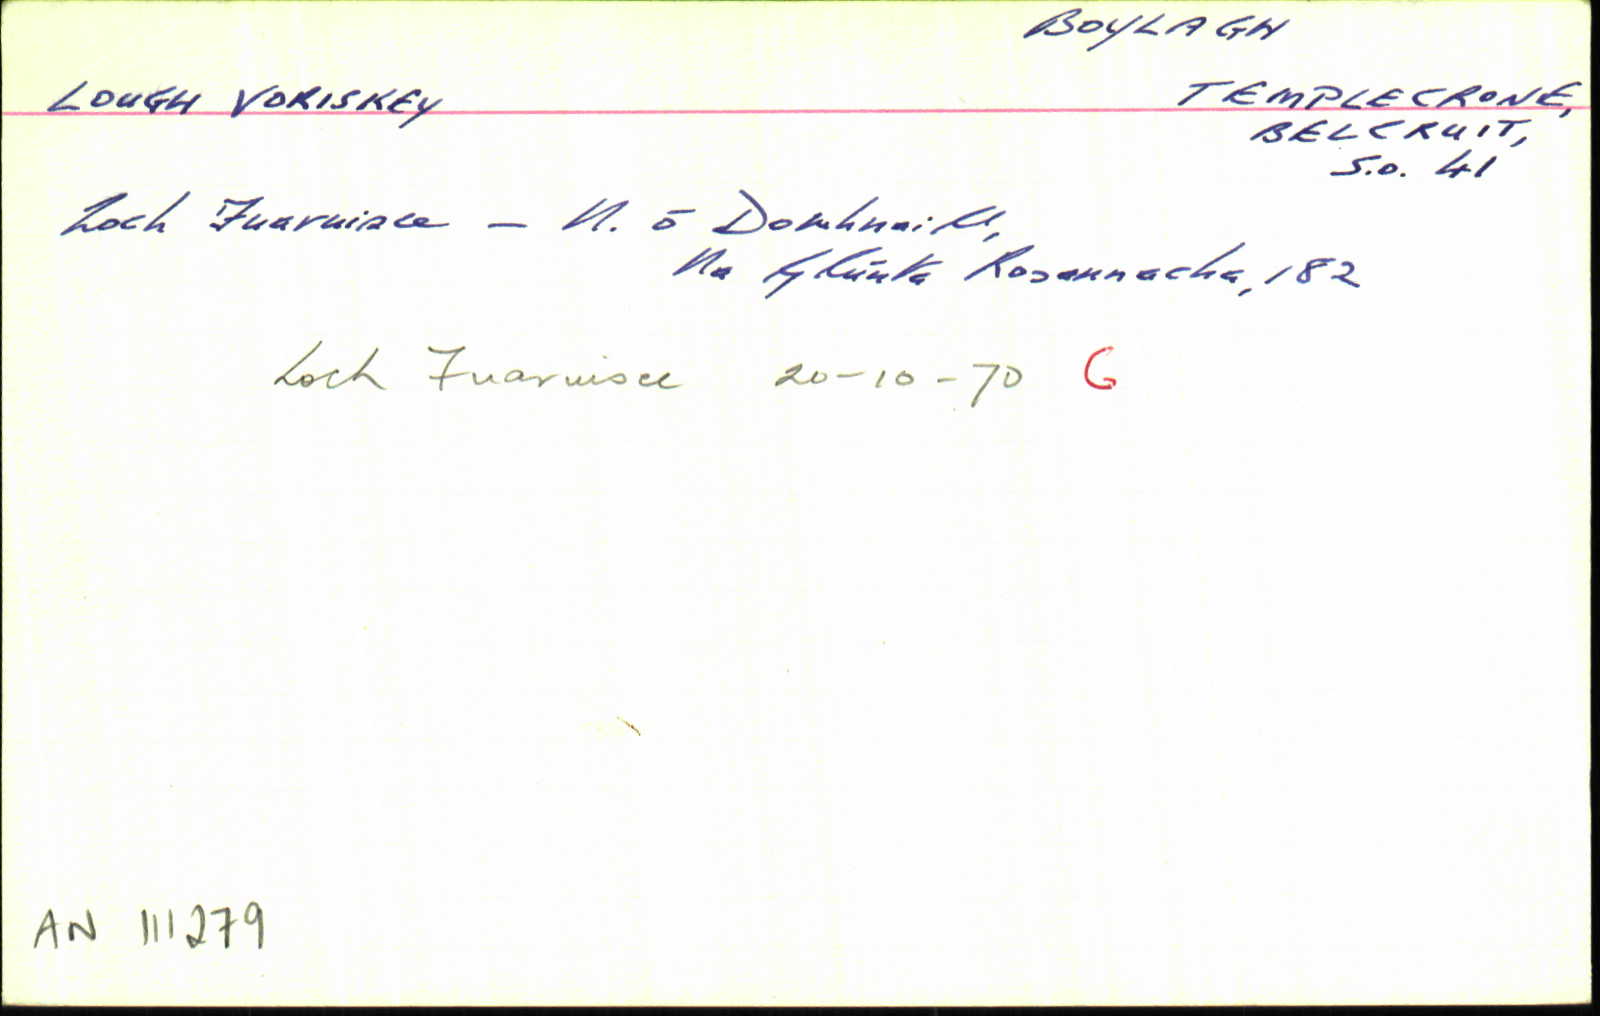 BOYLAGH
LOUGH VORISKEY
TEMPLECRONE,
BELCRUIT,
S.O. 41
Loch Fuaruisce — N. Ó Domhnaill,
Na Glúnta Rosannacha, 182
Loch Fuaruisce 20-10-70 G
AN 111279